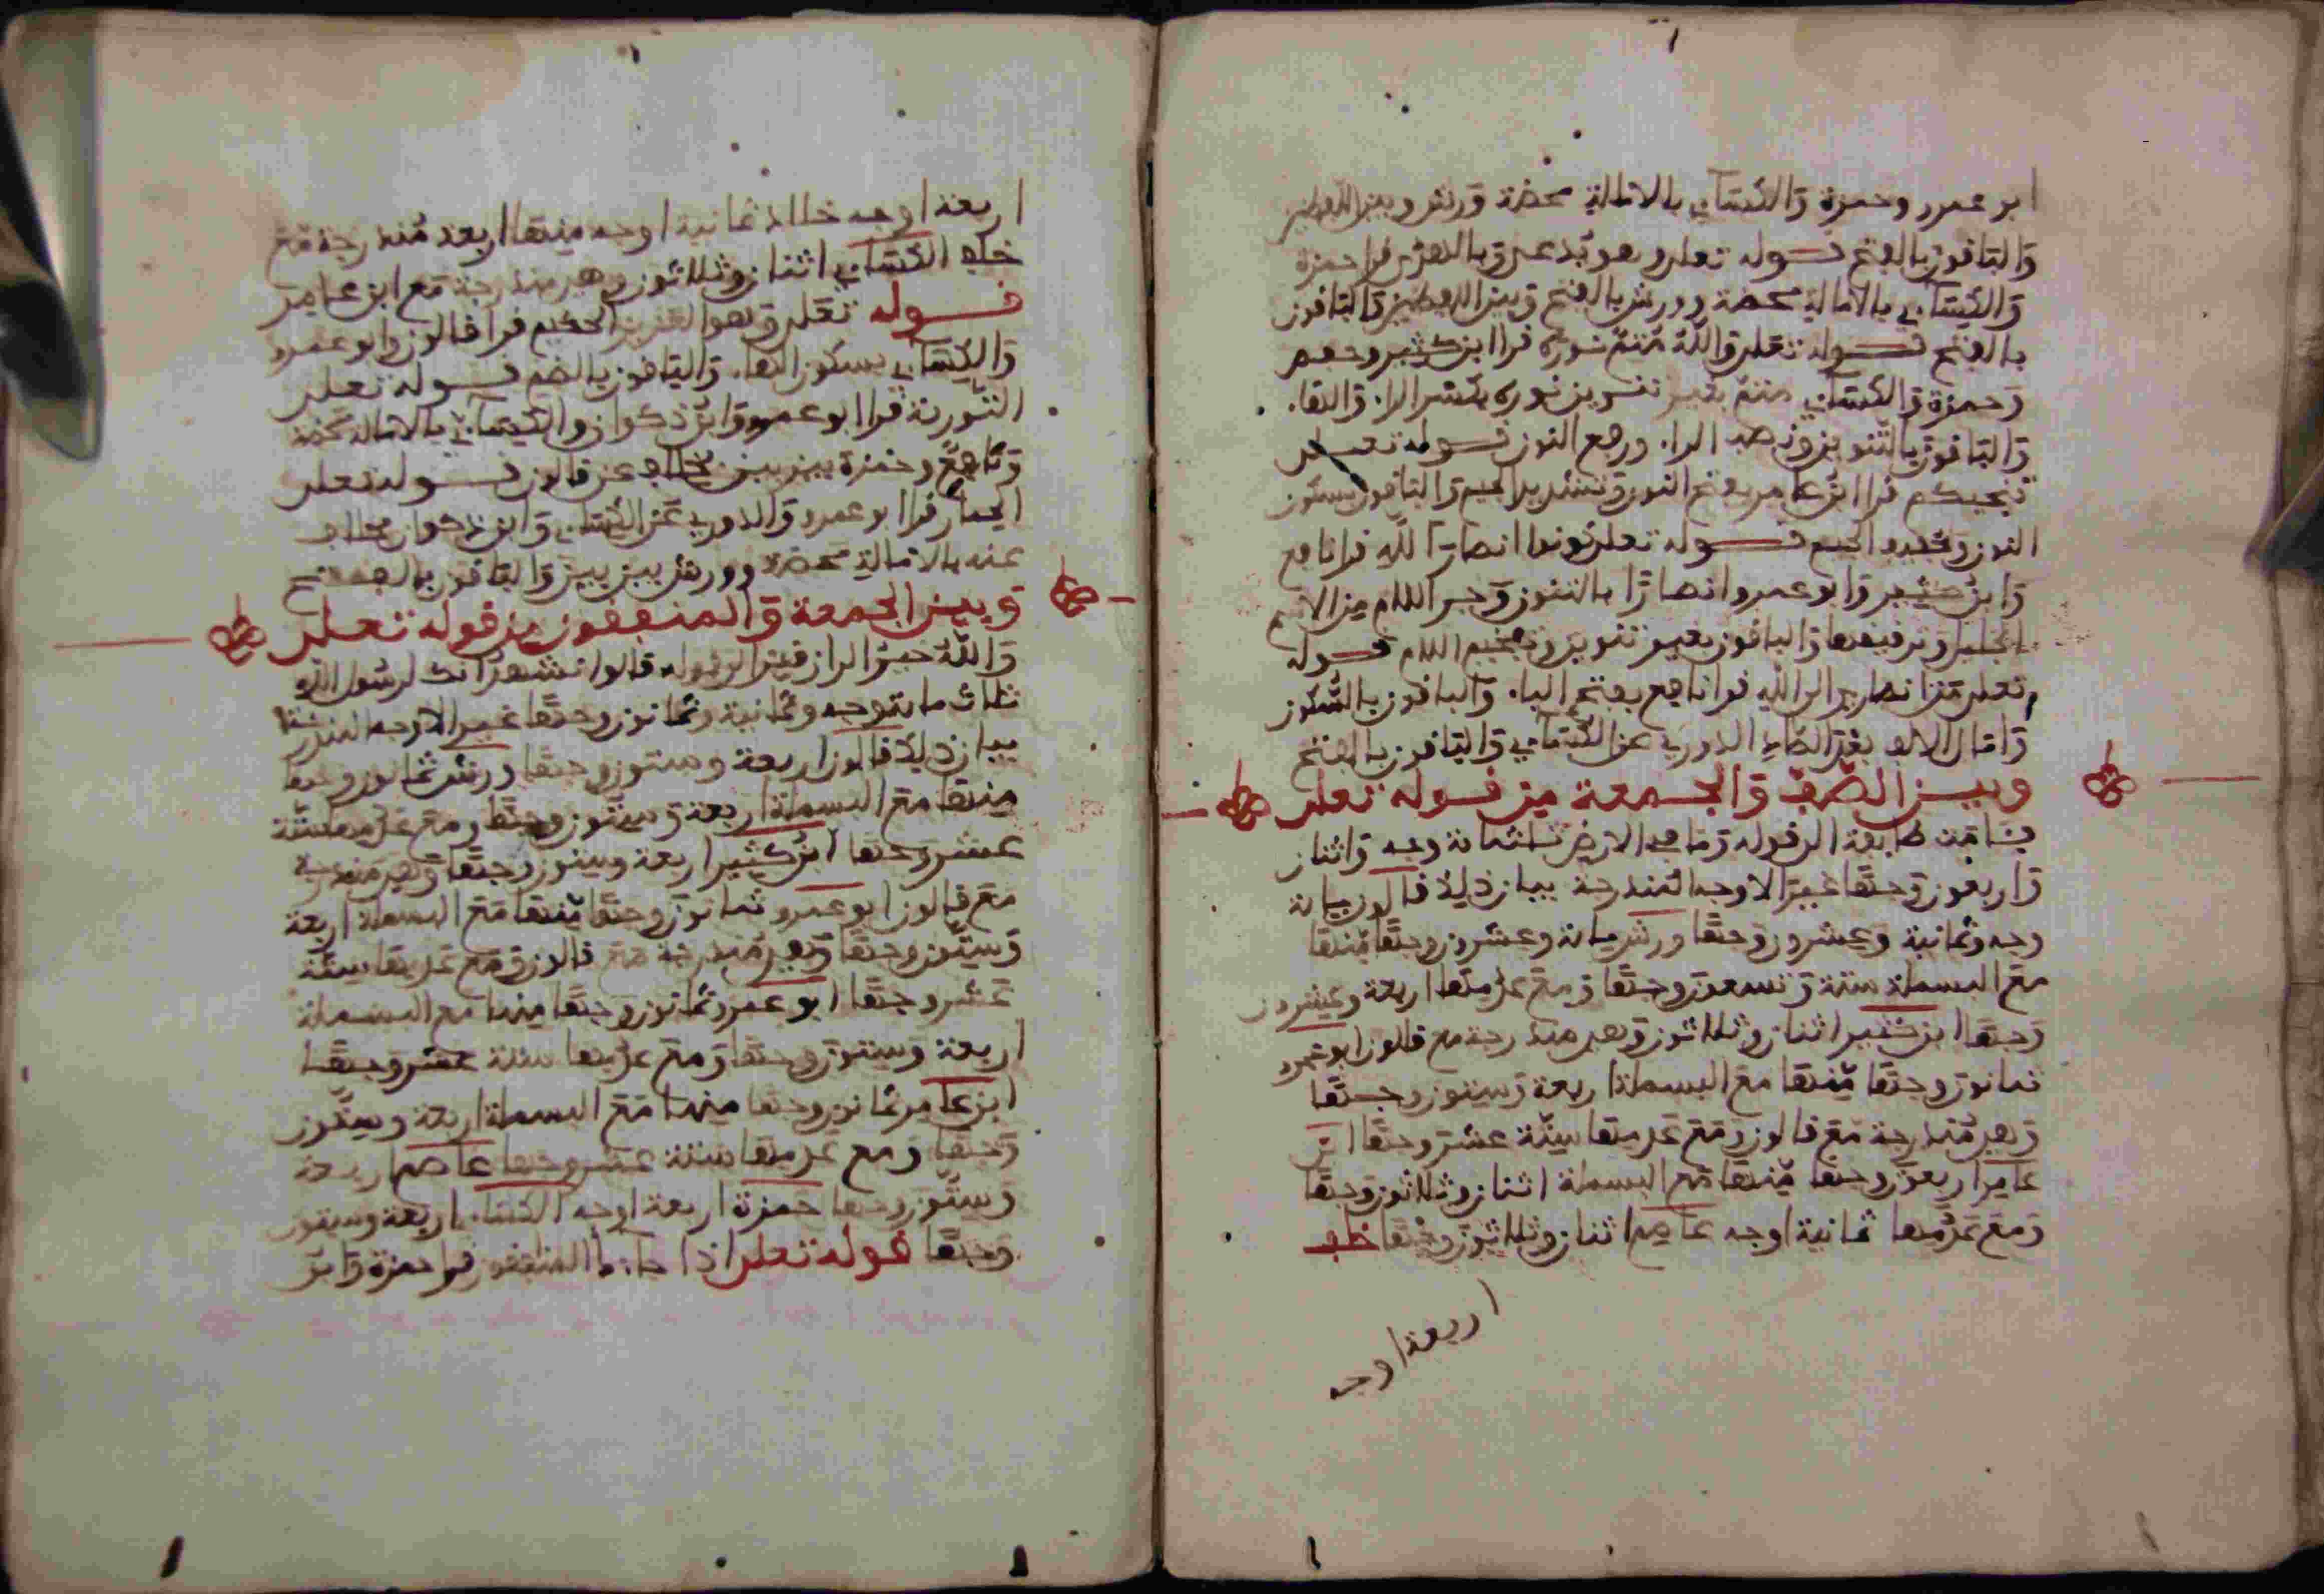 ابو عمرو وحمزة والكساءي بالامالة محضة وورش وبين اللفظين
والباقون بالفتح قوله تعلى وهو يدعى وبالهدى قرا حمزة
والكساءي بالامالة محضة وورش بالفتح وبين اللفظين والباقون
بالفتح قوله تعلى والله متم نوره قرا ابن كثير وحفص
وحمزة والكساءي متم بغير تنوين نوره بكسر الرا والها
والباقون بالتنوين ونصب الرا ورفع النون قوله تعلى
تنجيكم قرا ابن عامر بفتح النون وتشديد الجيم والباقون بسكون
النون وتخفيف الجيم قوله تعلى كونوا انصار الله قرا نافع
وابن كثير وابو عمرو انصارا بالتنوين وجر اللام من الاسم
الجليل وترقيقها والباقون بغير تنوين وتفخيم اللام قوله
تعلى من انصاري الى الله قرا نافع بفتح اليا والباقون بالسكون
وامال الالف بعد الصاد الدوري عن الكساءي والباقون بالفتح
وبين الصف والجمعة من قوله تعلى
فامنت طايفة الى قوله وما في الارض ثلثمائة وجه واثنان
واربعون وجها غير الاوجه المندرجة بيان ذلك قالون مائة
وجه وثمانية وعشرون وجها ورش مائة وعشرون وجها منها
مع البسملة ستة وتسعون وجها ومع عدمها اربعة وعشرون
وجها ابن كثير اثنان وثلاثون وهي مندرجة مع قالون ابو عمرو
ثمانون وجها منها مع البسملة اربعة وستون وجها
وهي مندرجة مع قالون ومع عدمها ستة عشر وجها ابن
عامر اربعون وجها منها مع البسملة اثنان وثلاثون وجها
ومع عدمها ثمانية اوجه عاصم اثنان وثلاثون وجها خلف
اربعة اوجه
اربعة اوجه خلاد ثمانية اوجه منها اربعة مندرجة مع
خلف الكساءي اثنان وثلاثون وهي مندرجة مع ابن عامر
قوله تعلى وهو العزيز الحكيم قرا قالون وابو عمرو
والكساءي بسكون الها والباقون بالضم قوله تعلى
التورية قرا ابو عمرو وابن ذكوان والكساءي بالامالة محضة
ونافع وحمزة بين بين بخلاف عن قالون قوله تعلى
الحمار قرا ابو عمرو والدوري عن الكساءي وابن ذكوان بخلاف
عنه بالامالة محضة وورش بين بين والباقون بالفتح
وبين الجمعة والمنفقون من قوله تعلى
والله خير الرازقين الى قوله قالوا نشهد انك لرسول الله
ثلاث مائة وجه وثمانية وثمانون وجها غير الاوجه المندرجة
بيان ذلك قالون اربعة وستون وجها ورش ثمانون وجها
منها مع البسملة اربعة وستون وجها ومع عدمها ستة
عشر وجها ابن كثير اربعة وستون وجها وهي مندرجة
مع قالون ابو عمرو ثمانون وجها منها مع البسملة اربعة
وستون وجها وهي مندرجة مع قالون ومع عدمها ستة
عشر وجها ابو عمرو ثمانون وجها منها مع البسملة
اربعة وستون وجها ومع عدمها ستة عشر وجها
ابن عامر ثمانون وجها منها مع البسملة اربعة وستون
وجها ومع عدمها ستة عشر وجها عاصم اربعة
وستون وجها حمزة اربعة اوجه الكساءي اربعة وستون
وجها قوله تعلى اذا جاءك المنفقون قرا حمزة وابن